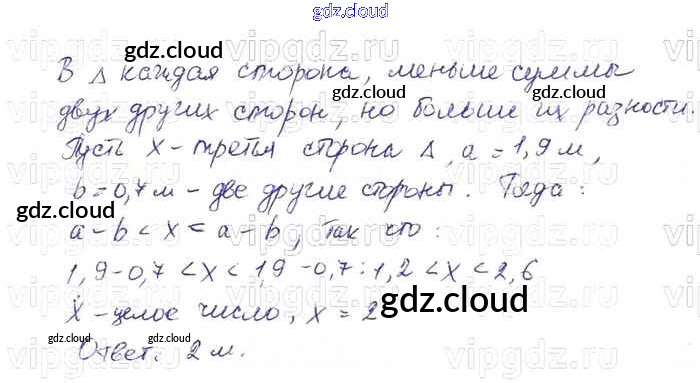 gdz.cloud
В Δ каждая сторона, меньше суммы
двух других сторон, но больше их разности.
Пусть X - третья сторона Δ, a = 1,9 м,
b = 0,7 м - две другие стороны. Тогда:
a - b < x < a - b, так что:
1,9 - 0,7 < X < 1,9 - 0,7 : 1,2 < X < 2,6
X - целое число, x = 2
Ответ. 2 м.
gdz.cloud
gdz.cloud
gdz.cloud
gdz.cloud
gdz.cloud
gdz.cloud
gdz.cloud
vipgdz.ru
vipgdz.ru
vipgdz.ru